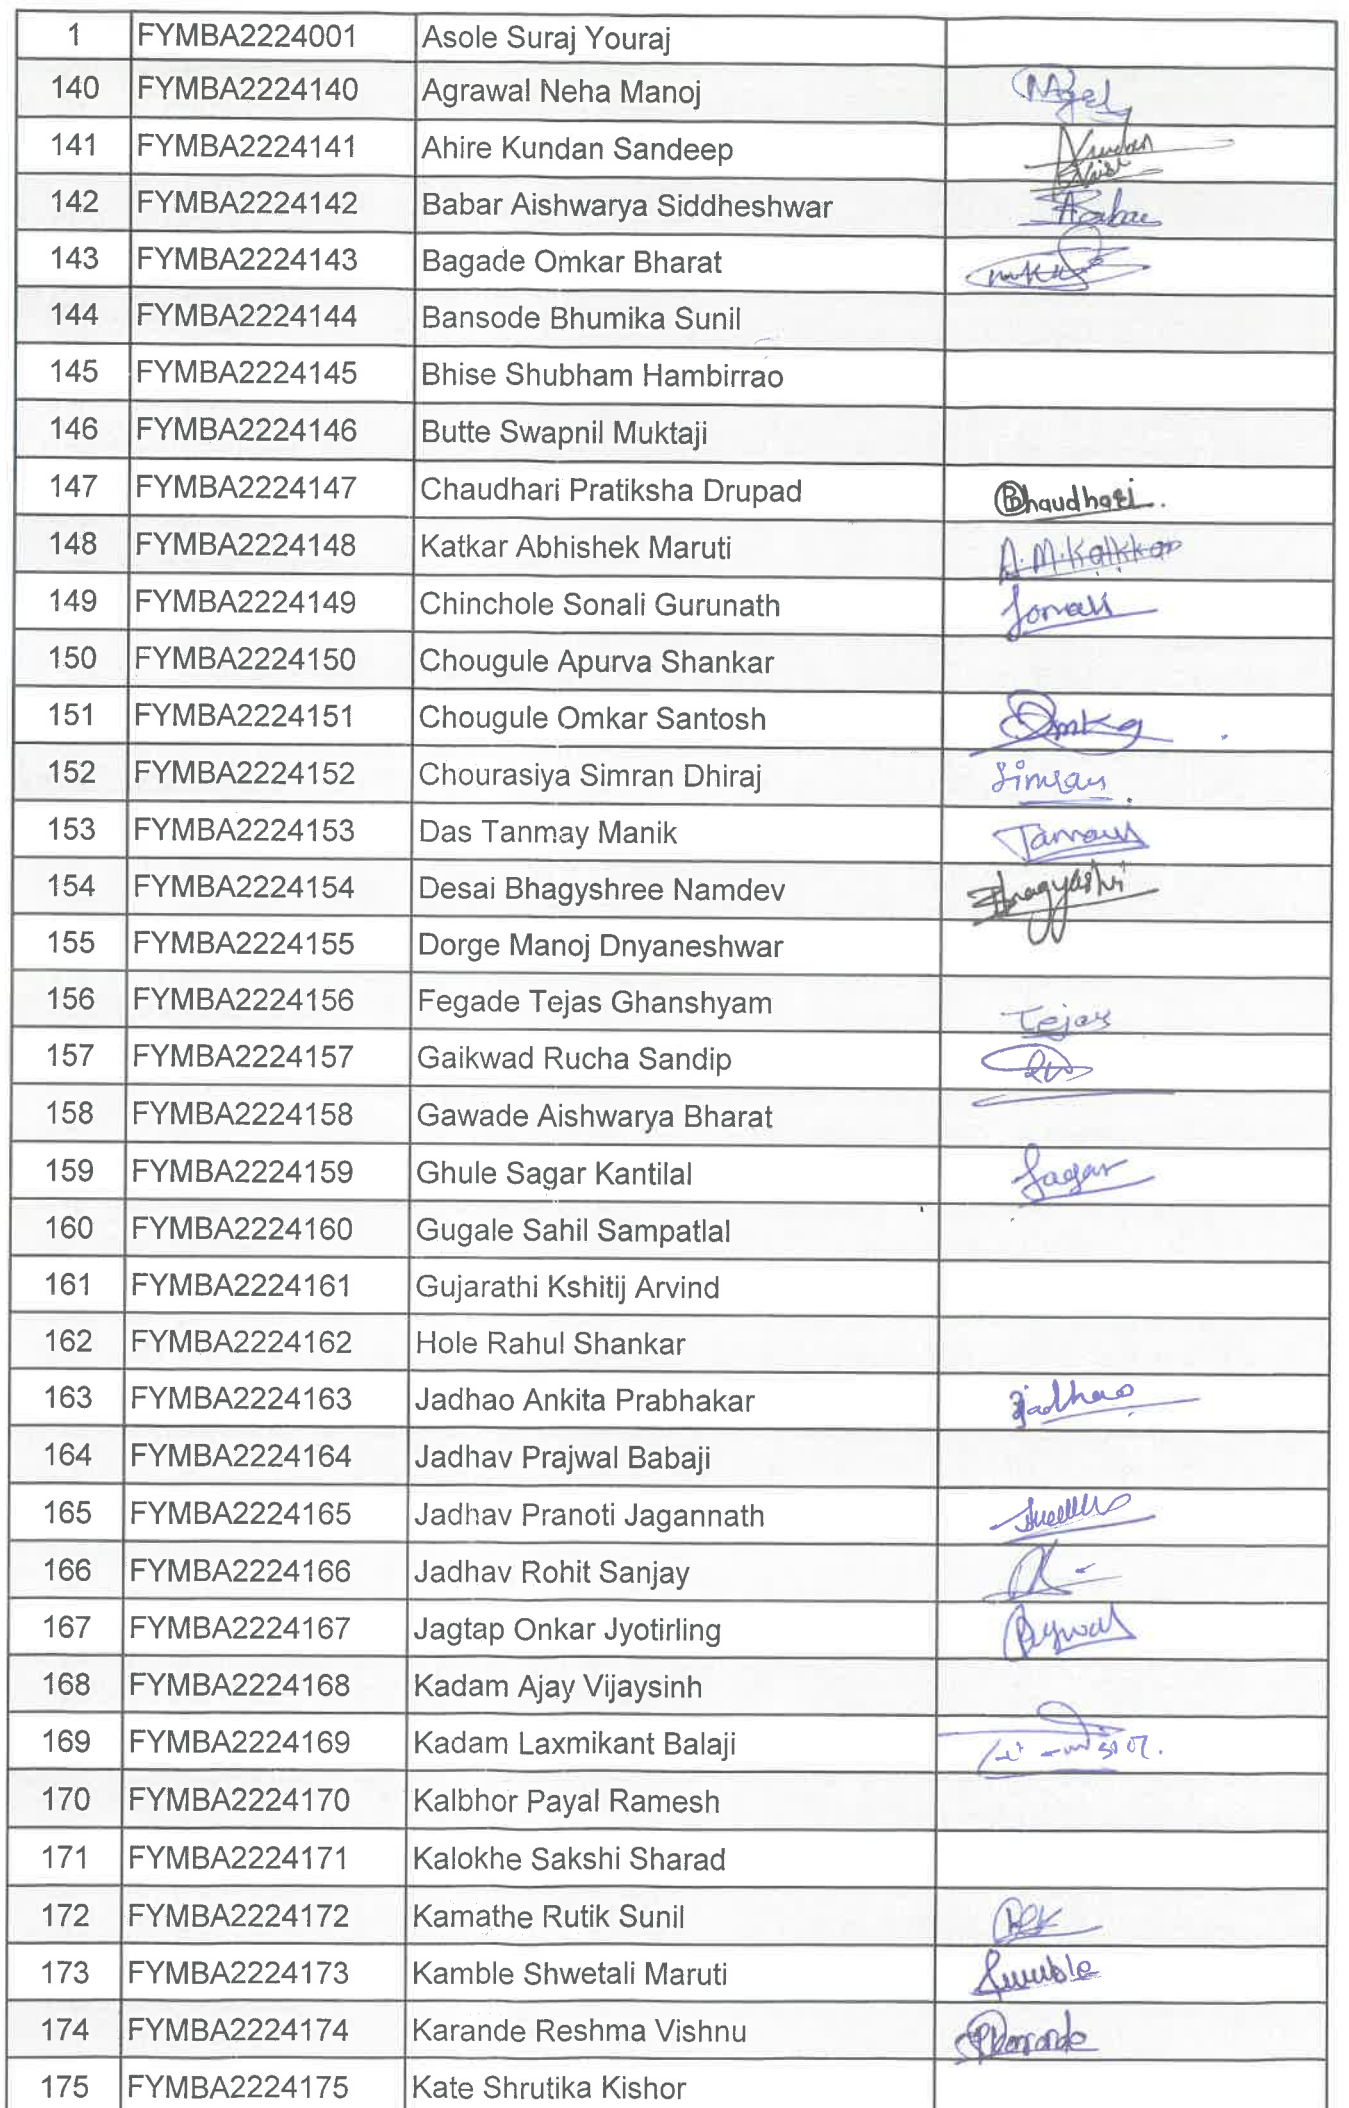 1 FYMBA2224001 Asole Suraj Youraj
140 FYMBA2224140 Agrawal Neha Manoj
141 FYMBA2224141 Ahire Kundan Sandeep Kundan
142 FYMBA2224142 Babar Aishwarya Siddheshwar ABabar
143 FYMBA2224143 Bagade Omkar Bharat
144 FYMBA2224144 Bansode Bhumika Sunil
145 FYMBA2224145 Bhise Shubham Hambirrao
146 FYMBA2224146 Butte Swapnil Muktaji
147 FYMBA2224147 Chaudhari Pratiksha Drupad Chaudhari.
148 FYMBA2224148 Katkar Abhishek Maruti A.M.Katkar
149 FYMBA2224149 Chinchole Sonali Gurunath Sonali
150 FYMBA2224150 Chougule Apurva Shankar
151 FYMBA2224151 Chougule Omkar Santosh Omkar
152 FYMBA2224152 Chourasiya Simran Dhiraj Simran
153 FYMBA2224153 Das Tanmay Manik Tanmay
154 FYMBA2224154 Desai Bhagyshree Namdev Bhagyashri
155 FYMBA2224155 Dorge Manoj Dnyaneshwar
156 FYMBA2224156 Fegade Tejas Ghanshyam Tejas
157 FYMBA2224157 Gaikwad Rucha Sandip
158 FYMBA2224158 Gawade Aishwarya Bharat
159 FYMBA2224159 Ghule Sagar Kantilal Sagar
160 FYMBA2224160 Gugale Sahil Sampatlal
161 FYMBA2224161 Gujarathi Kshitij Arvind
162 FYMBA2224162 Hole Rahul Shankar
163 FYMBA2224163 Jadhao Ankita Prabhakar Jadhao
164 FYMBA2224164 Jadhav Prajwal Babaji
165 FYMBA2224165 Jadhav Pranoti Jagannath
166 FYMBA2224166 Jadhav Rohit Sanjay
167 FYMBA2224167 Jagtap Onkar Jyotirling
168 FYMBA2224168 Kadam Ajay Vijaysinh
169 FYMBA2224169 Kadam Laxmikant Balaji
170 FYMBA2224170 Kalbhor Payal Ramesh
171 FYMBA2224171 Kalokhe Sakshi Sharad
172 FYMBA2224172 Kamathe Rutik Sunil
173 FYMBA2224173 Kamble Shwetali Maruti
174 FYMBA2224174 Karande Reshma Vishnu
175 FYMBA2224175 Kate Shrutika Kishor